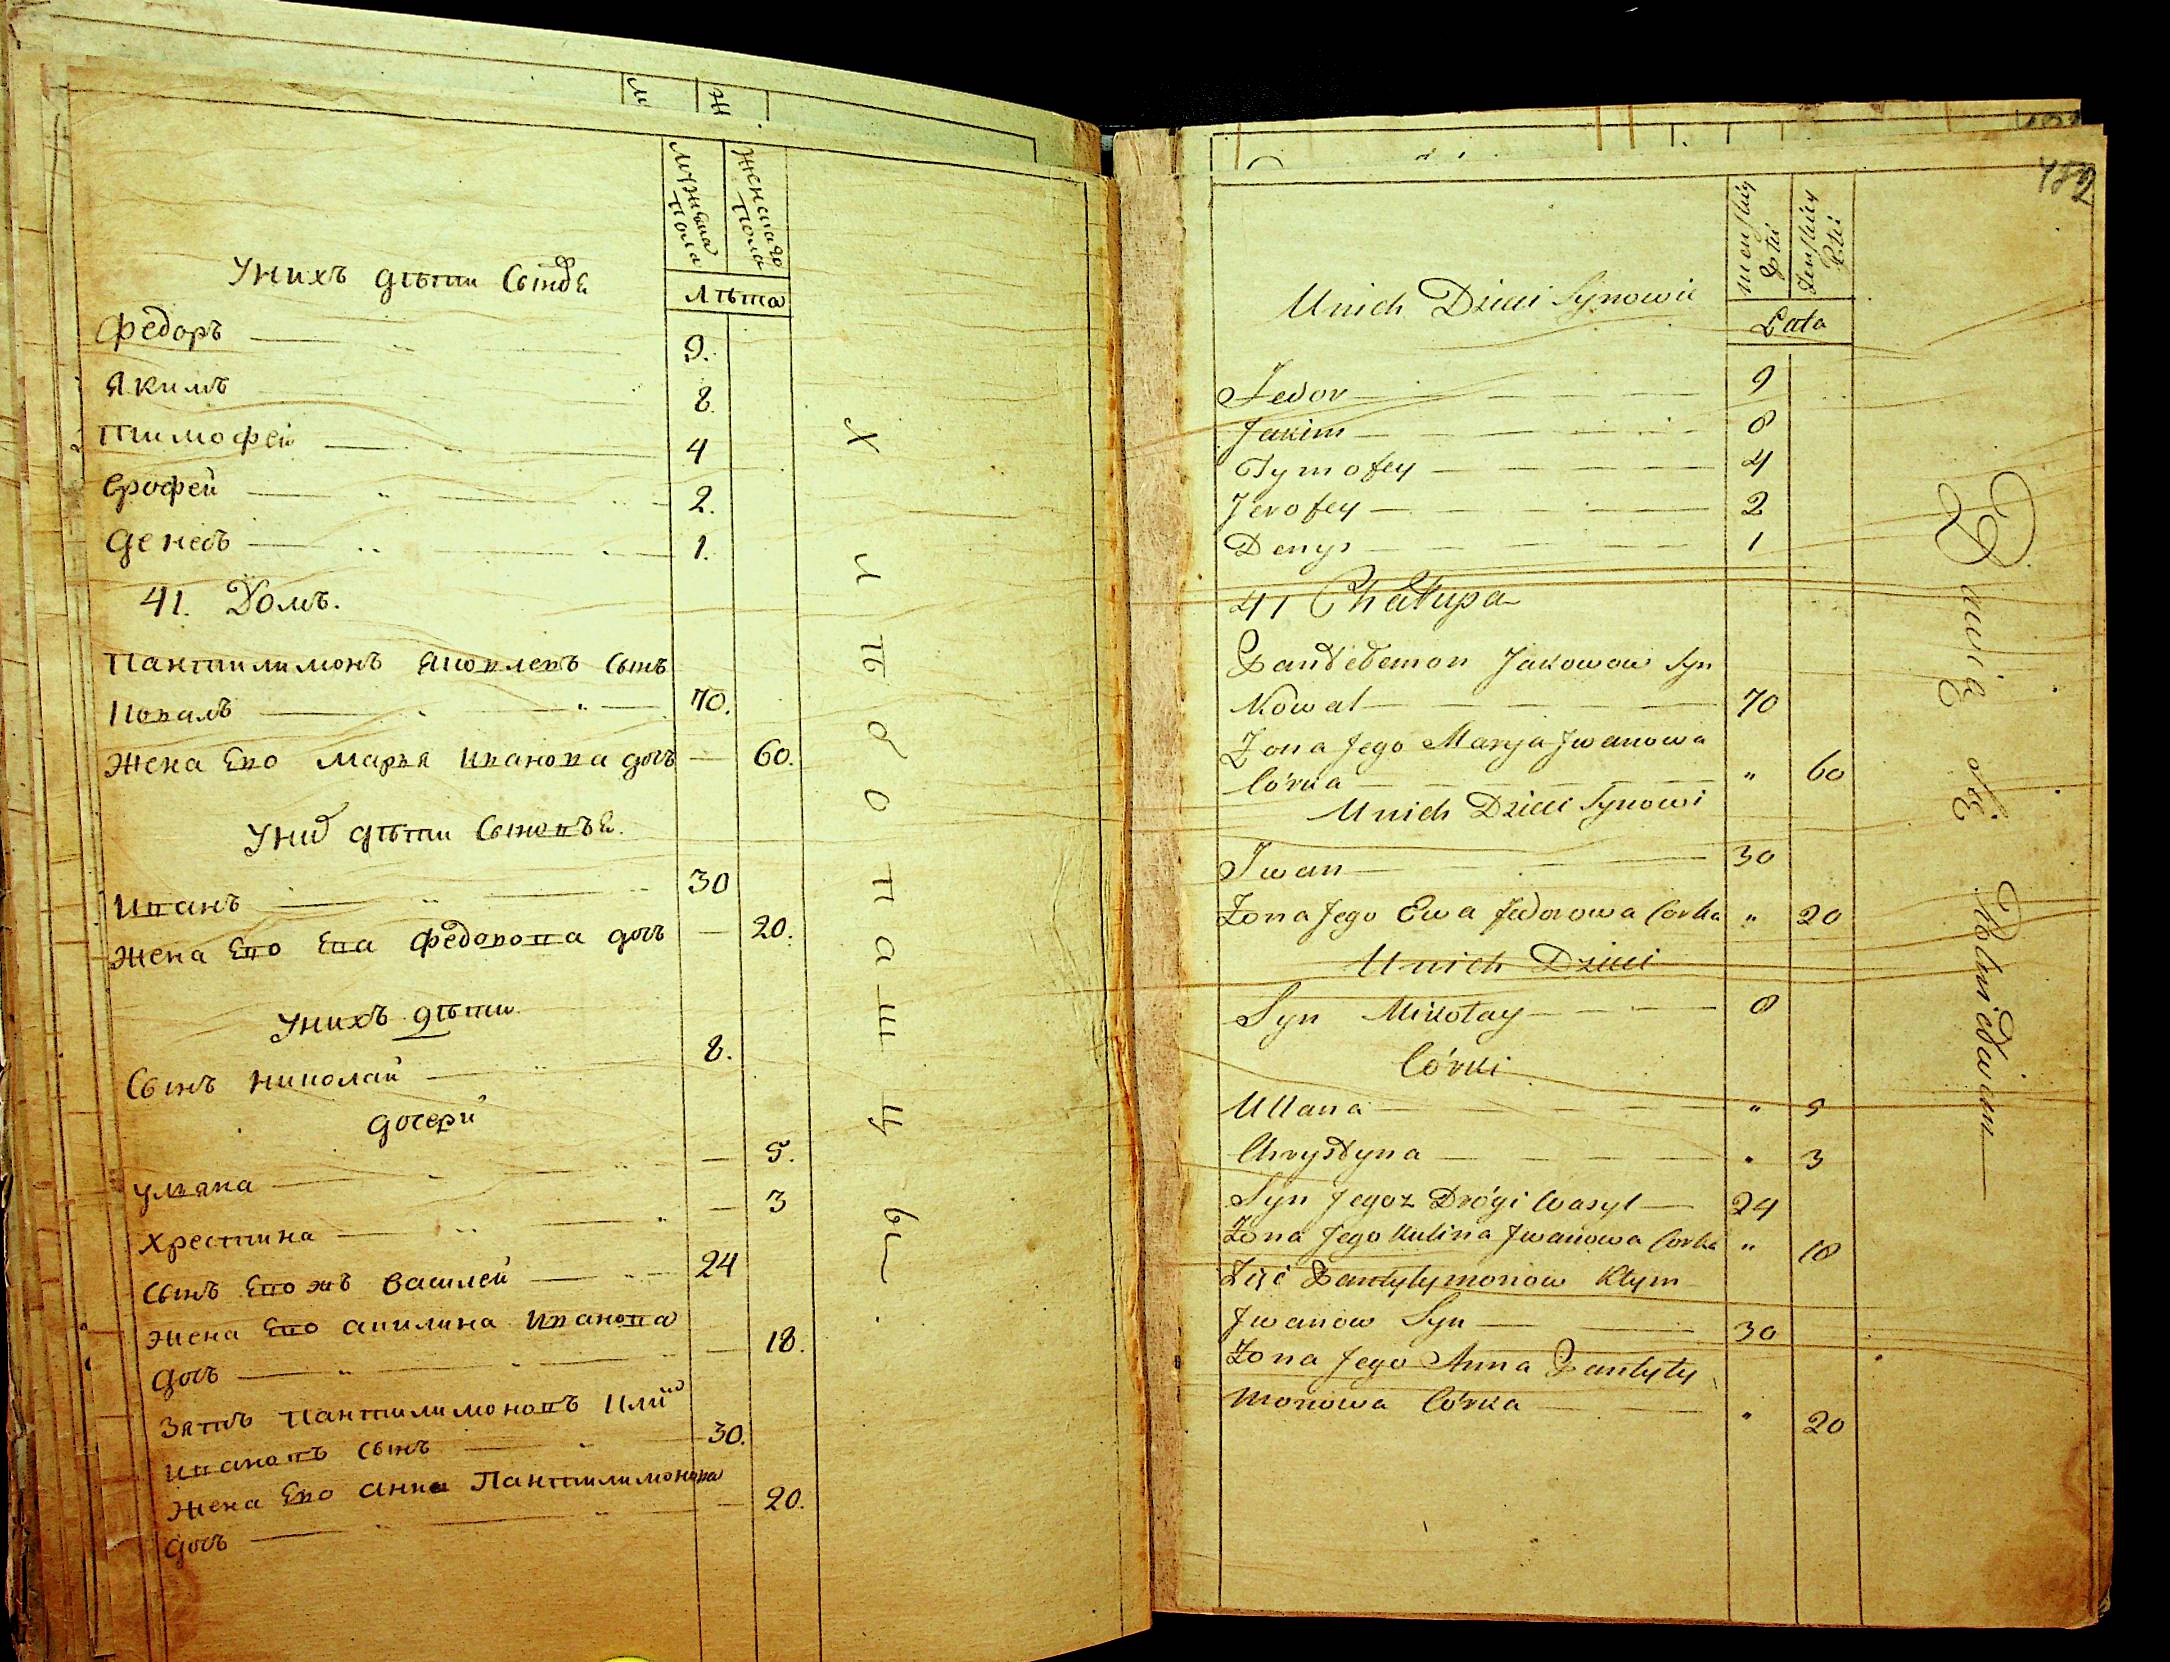 М
Ж
Мужеска пола
Женскаго пола
Лѣта
Унихъ дѣти Сынове
Федоръ 9.
Якимъ 8.
Тимофей 4
Ерофей 2.
Денесъ 1.
41. Домъ.
Пантилимонъ Яковлевъ Сынъ
Ковалъ 70.
Жена Его Марья Иванова дочь — 60.
Униx дѣти Сыновья.
Иванъ 30
Жена Его Ева Федорова дочь — 20.
Унихъ дѣти
Сынъ Николай 8.
дочери
Ульяна — 5.
Хрестина — 3
Сынъ Егожъ Василей 24
Жена Его Акилина Иванова
дочь — 18.
Зять Пантилимоновъ Клим
Ивановъ Сынъ 30.
Жена Его Анна Пантилимонова
дочь — 20.
Хлѣбопашцы.
482
Męskiey Płci
Żenskiey Płci
Lata
Unich Dzieci Synowie
Fedor 9
Jakim 8
Tymofey 4
Jerofey 2
Denys 1
41 Chałupa
Pantelemon Jakowow Syn
Kowal 70
Żona Jego Marya Jwanowa
Córka " 60
Unich Dzieci Synowi
Iwan 30
Żona Jego Ewa Fedorowa Corka " 20
Unich Dzieci
Syn Mikołay 8
Córki
Ullana " 5
Chrystyna " 3
Syn Jegoz Drógi Wasyl 24
Żona Jego Kulina Jwanowa Corka " 18
Zięć Pantylymonow Klym
Jwanow Syn 30
Żona Jego Anna Pantyly
monowa Córka " 20
Bawią się Rolnictwem